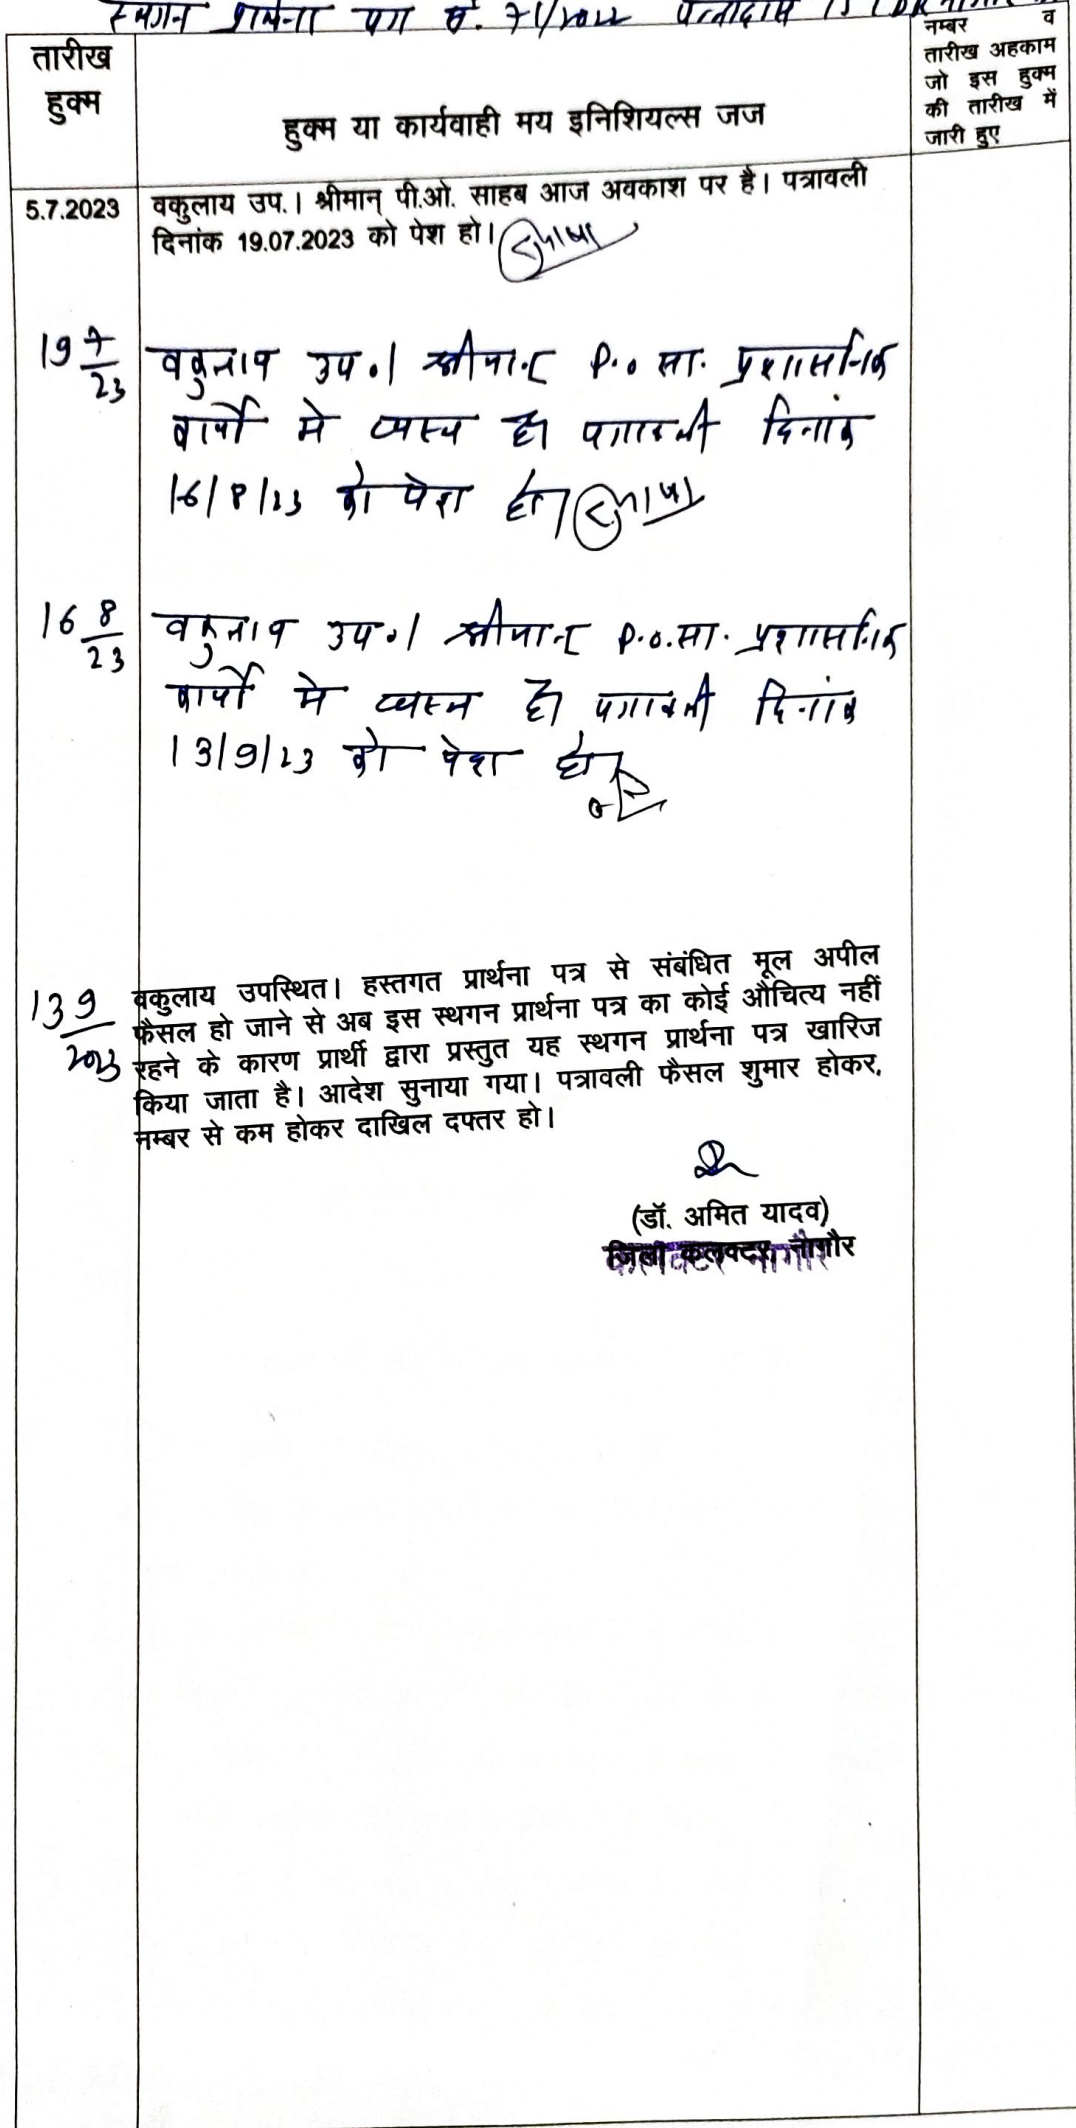 स्थगन प्रार्थना पत्र सं. 71/2022
तारीख
हुक्म
हुक्म या कार्यवाही मय इनिशियल्स जज
नम्बर व
तारीख अहकाम
जो इस हुक्म
की तारीख में
जारी हुए
5.7.2023 वकुलाय उप.। श्रीमान् पी.ओ. साहब आज अवकाश पर है। पत्रावली
दिनांक 19.07.2023 को पेश हो।
19 7/23 वकुलाय उप.। श्रीमान् P.o सा. प्रशासनिक
कार्यो मे व्यस्त है। पत्रावली दिनांक
16/8/23 को पेश हो।
16 8/23 वकुलाय उप.। श्रीमान् P.o.सा. प्रशासनिक
कार्यो मे व्यस्त है। पत्रावली दिनांक
13/9/23 को पेश हो।
13 9/2023 वकुलाय उपस्थित। हस्तगत प्रार्थना पत्र से संबंधित मूल अपील
फैसल हो जाने से अब इस स्थगन प्रार्थना पत्र का कोई औचित्य नहीं
रहने के कारण प्रार्थी द्वारा प्रस्तुत यह स्थगन प्रार्थना पत्र खारिज
किया जाता है। आदेश सुनाया गया। पत्रावली फैसल शुमार होकर,
नम्बर से कम होकर दाखिल दफ्तर हो।
(डॉ. अमित यादव)
जिला कलक्टर, नागौर